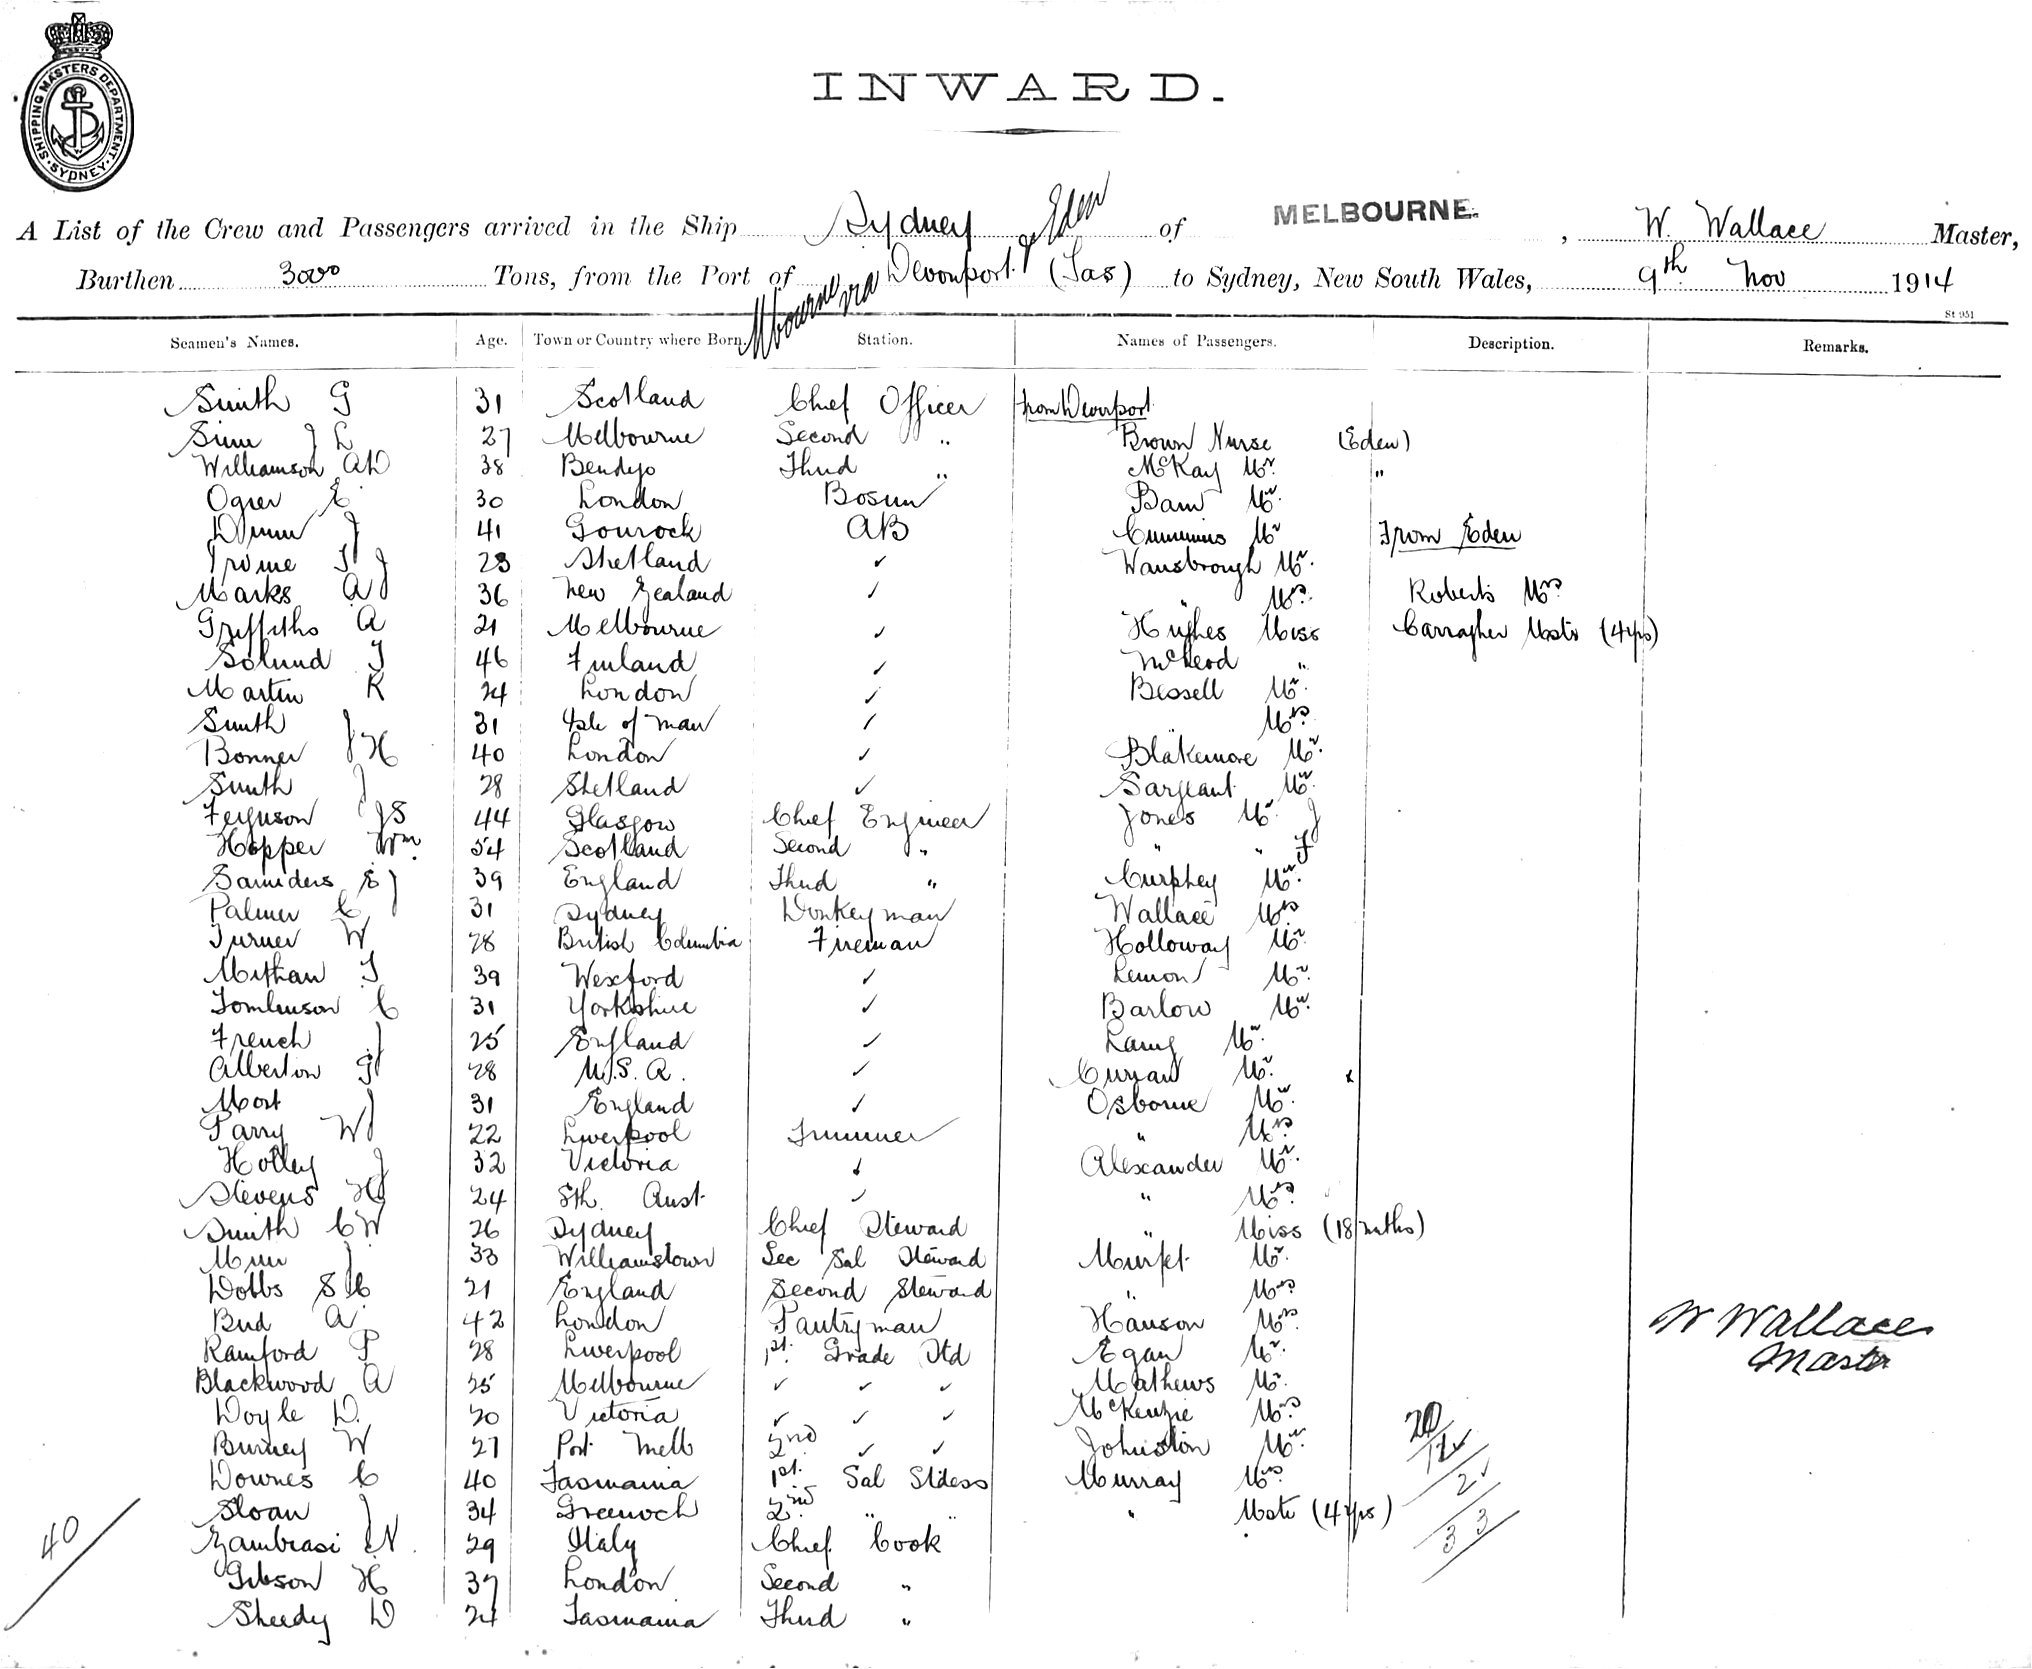 SHIPPING MASTERS DEPARTMENT. SYDNEY.
INWARD.
A List of the Crew and Passengers arrived in the Ship Sydney of MELBOURNE. , W. Wallace Master,
Burthen 3000 Tons, from the Port of Mbourne via Devonport & Eden (Tas) to Sydney, New South Wales, 9th Nov 1914
St 951
Seamen's Names. Age. Town or Country where Born. Station. Names of Passengers. Description. Remarks.
Smith G 31 Scotland Chief Officer From Devonport
Sim J L 27 Melbourne Second " Brown Nurse (Eden)
Williamson AD 38 Bendigo Third " McKay Mr. "
Ogier E 30 London Bosun Bain Mr.
Dunn J 41 Gourock AB Cummins Mr From Eden
Irvine T J 23 Shetland ✓ Wansbrough Mr.
Marks A 36 New Zealand ✓ " Mrs. Roberts Mrs
Griffiths A 21 Melbourne ✓ Hughes Miss Carragher Mstr (4yrs)
Solund T 46 Finland ✓ McLeod "
Martin K 24 London ✓ Bessell Mr.
Smith J 31 Isle of Man ✓ " Mrs.
Bonner H 40 London ✓ Blakemore Mr.
Smith J 28 Shetland ✓ Sargeant Mr.
Ferguson JS 44 Glasgow Chief Engineer Jones Mr. J
Hopper Wm. 54 Scotland Second " " " F
Saunders E J 39 England Third " Curphey Mr.
Palmer C 31 Sydney Donkeyman Wallace Mrs
Turner W 28 British Columbia Fireman Holloway Mr.
Mithan T 39 Wexford ✓ Lemon Mr.
Tomlinson C 31 Yorkshire ✓ Barlow Mr.
French J 25 England ✓ Laing Mr.
Alberton G 28 U.S.A. ✓ Curran Mr. x
Mort J 31 England ✓ Osborne Mr.
Parry W 22 Liverpool Trimmer " Mrs
Holley J 32 Victoria ✓ Alexander Mr.
Stevens H 24 Sth. Aust. ✓ " Mrs.
Smith C W 26 Sydney Chief Steward " Miss (18 mths)
Muir J 33 Williamstown Sec Sal Steward Murfet Mr.
Dobbs S M 21 England Second Steward " Mrs
Bird A 42 London Pantryman Hanson Mrs.
Ramford P 28 Liverpool 1st. Grade Std Egan Mr.
Blackwood A 25 Melbourne ✓ ✓ ✓ Mathews Mr.
Doyle D. 20 Victoria ✓ ✓ ✓ McKenzie Mrs
Burney W 27 Port Melb 2nd ✓ ✓ Johnston Mr.
Downes C 40 Tasmania 1st. Sal Stdess Murray Mrs
Sloan J 34 Greenoch 2nd " " " Mstr (4yrs)
Zambrasi N. 29 Italy Chief Cook
Gibson H 37 London Second "
Sheedy D 24 Tasmania Third "
W Wallace
Master
40
20
12
2
33